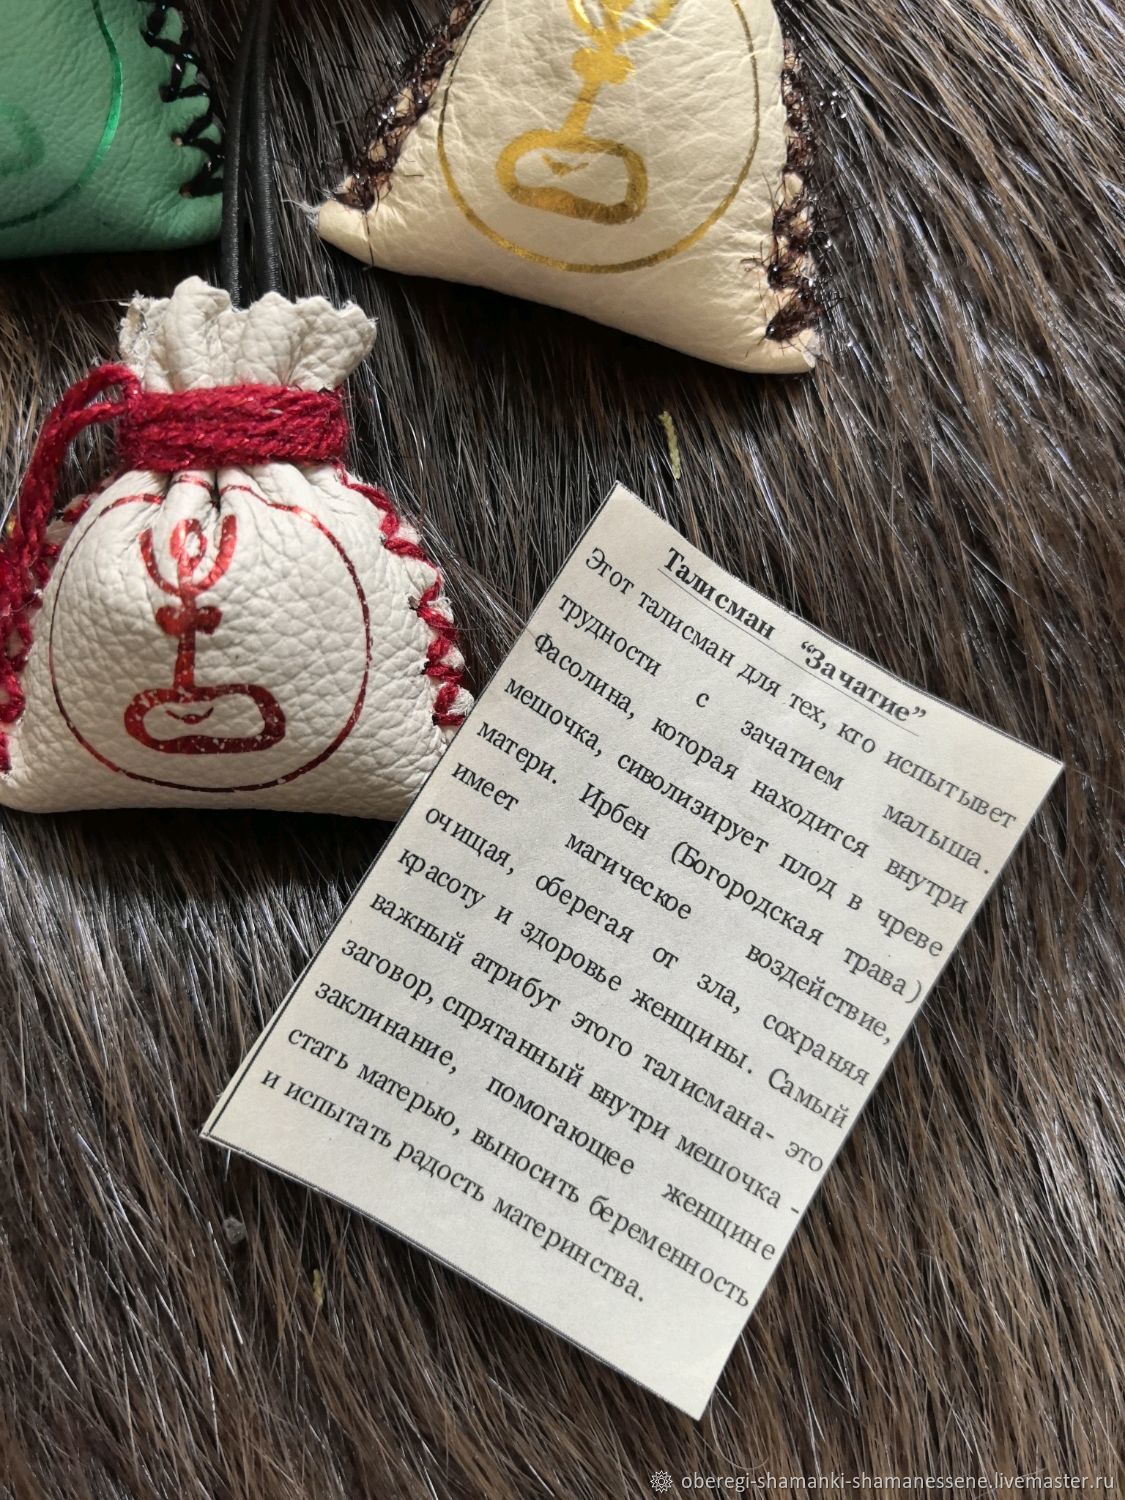 Талисман “Зачатие”
Этот талисман для тех, кто испытывет
трудности с зачатием малыша.
Фасолина, которая находится внутри
мешочка, сиволизирует плод в чреве
матери. Ирбен (Богородская трава)
имеет магическое воздействие,
очищая, оберегая от зла, сохраняя
красоту и здоровье женщины. Самый
важный атрибут этого талисмана- это
заговор, спрятанный внутри мешочка -
заклинание, помогающее женщине
стать матерью, выносить беременность
и испытать радость материнства.
oberegi-shamanki-shamanessene.livemaster.ru